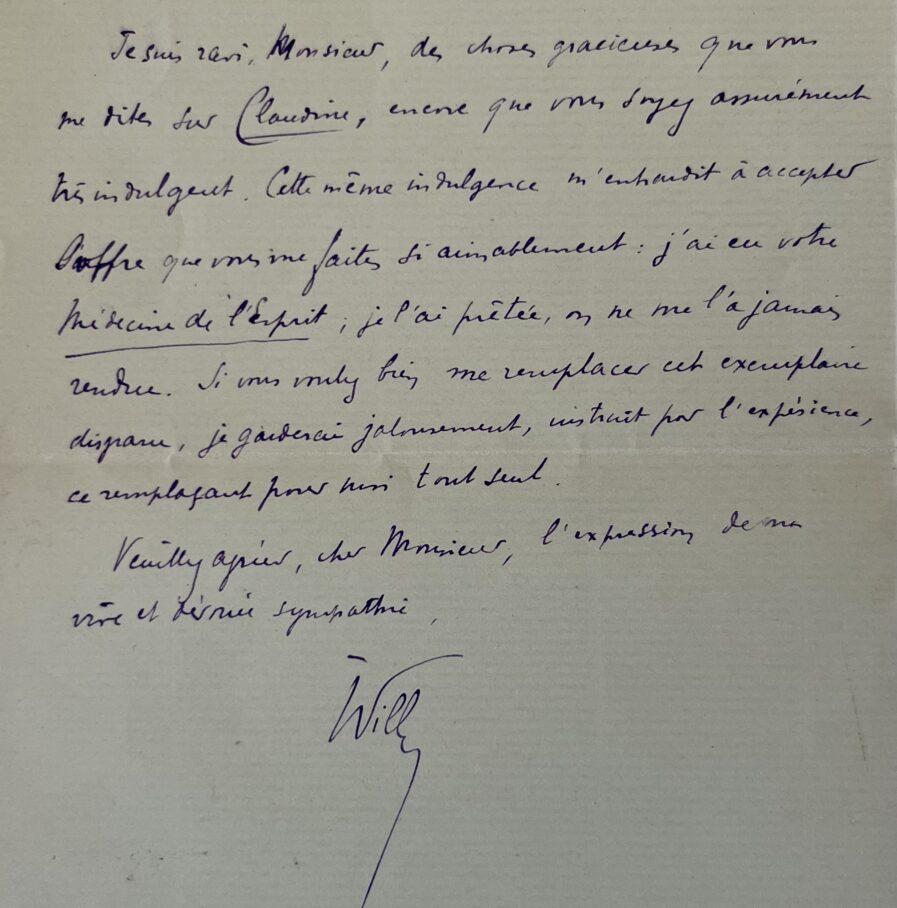 Je suis ravi, Monsieur, des choses gracieuses que vous
me dites sur Claudine, encore que vous soyez assurément
très indulgent. Cette même indulgence m'enhardit à accepter
l'offre que vous me faites si aimablement : j'ai eu votre
Médecine de l'Esprit ; je l'ai prêtée, on ne me l'a jamais
rendue. Si vous voulez bien me remplacer cet exemplaire
disparu, je garderai jalousement, instruit par l'expérience,
ce remplaçant pour moi tout seul.
Veuillez agréer, cher Monsieur, l'expression de ma
vive et dévouée sympathie,
Willy